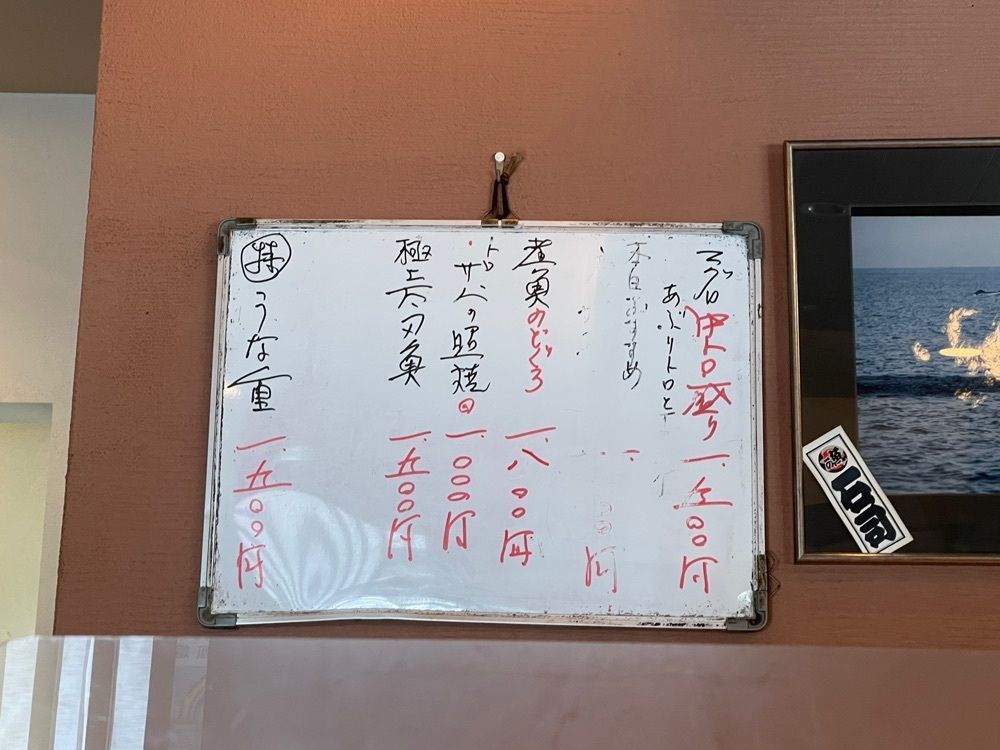 マグロ中トロ盛り 一.九〇〇円
あぶりトロと
本日おすすめ
円
煮魚のどぐろ 一.八〇〇円
トロ
サバの照焼 一.〇〇〇円
極上太刀魚 一.九〇〇円
特 うな重 一.九〇〇円